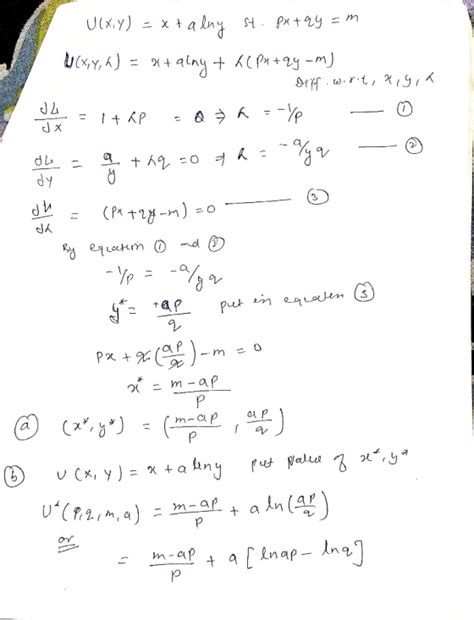 U(x,y) = x + a lny st. px + qy = m
U(x,y,λ) = x + alny + λ(px + qy - m)
Diff. w.r.t, x, y, λ
du/dx = 1 + λp = 0 ⇒ λ = -1/p —— ①
du/dy = a/y + λq = 0 ⇒ λ = -a/yq —— ②
du/dλ = (px + qy - m) = 0 —— ③
By equation ① and ②
-1/p = -a/yq
y* = +ap/q put in equation ③
px + q(ap/q) - m = 0
x* = m-ap/p
ⓐ (x*, y*) = (m-ap/p , ap/q)
ⓑ U(x,y) = x + a lny put value of x*, y*
U*(p,q,m,a) = m-ap/p + a ln(ap/q)
or
= m-ap/p + a [lnap - lnq]